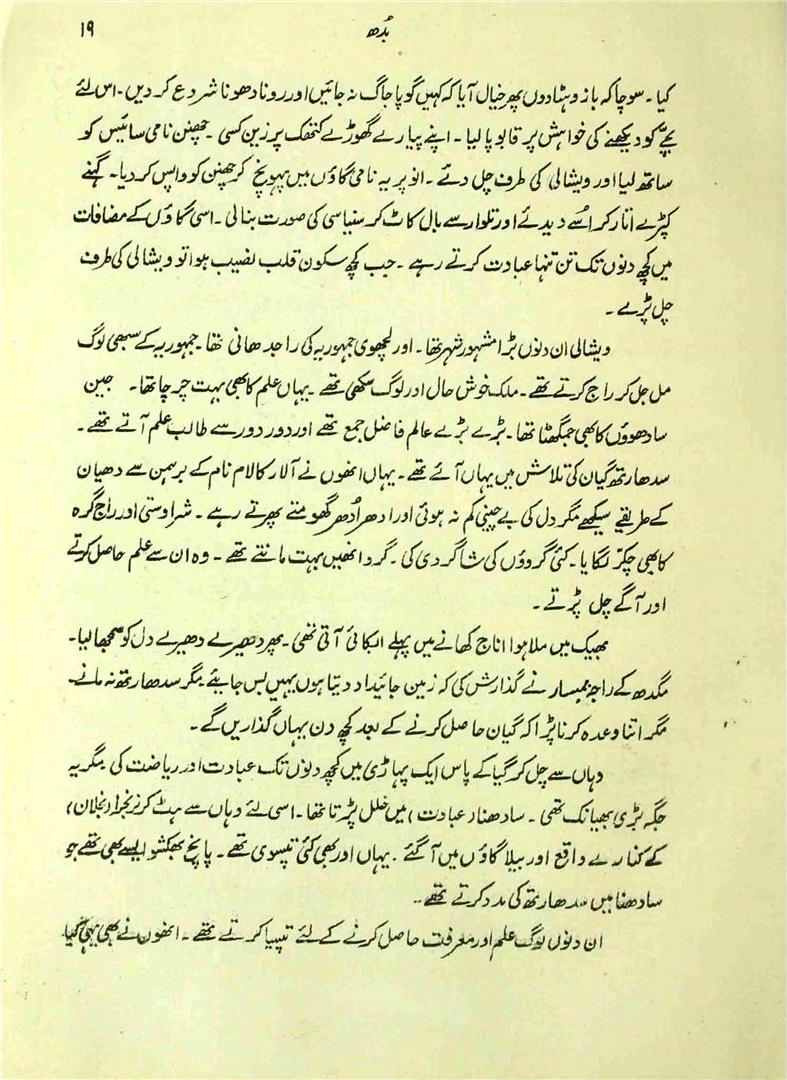 بُدھ
۱۹
کیا۔ سوچا کہ بازو ہٹا دوں پھر خیال آیا کہ کہیں گوپا جاگ نہ جائیں اور رونا دھونا شروع کر دیں۔ اس لئے
بچے کو دیکھنے کی خواہش پر قابو پا لیا۔ اپنے پیارے گھوڑے کنتھک پر زین کسی۔ چھنّن نامی سائیس کو
ساتھ لیا اور ویشالی کی طرف چل دئے۔ انوپریہ نامی گاؤں میں پہونچ کر چھنن کو واپس کر دیا۔ گہنے
کپڑے اتار کر اُسے دیدئے اور تلوار سے بال کاٹ کر سنیاسی کی صورت بنا لی۔ اسی گاؤں کے مضافات
میں کچھ دنوں تک تن تنہا عبادت کرتے رہے۔ جب کچھ سکون قلب نصیب ہوا تو ویشالی کی طرف
چل پڑے۔
ویشالی ان دنوں بڑا مشہور شہر تھا۔ اور لچھوی جمہوریہ کی راجدھانی تھا۔ جمہوریہ کے سبھی لوگ
مل جل کر راج کرتے تھے۔ ملک خوش حال اور لوگ سکھی تھے۔ یہاں علم کا بھی بہت چرچا تھا۔ جین
سادھوؤں کا بھی جمگھٹا تھا۔ بڑے بڑے عالم فاضل جمع تھے اور دور دور سے طالب علم آتے تھے۔
سدھارتھ گیان کی تلاش میں یہاں آئے تھے۔ یہاں انھوں نے آلار کالام نام کے برہمن سے دھیان
کے طریقے سیکھے مگر دل کی بے چینی کم نہ ہوئی اور ادھر اُدھر گھومتے پھرتے رہے۔ شراوستی اور راج گرہ
کا بھی چکّر لگایا۔ کئی گروؤں کی شاگردی کی۔ گرو انھیں بہت مانتے تھے۔ وہ ان سے علم حاصل کرتے
اور آگے چل پڑتے۔
بھیک میں ملا ہوا اناج کھانے میں پہلے ابکائی آتی تھی۔ پھر دھیرے دھیرے دل کو سمجھا لیا۔
مگدھ کے راجہ بمبسار نے گذارش کی کہ زمین جائیداد دیتا ہوں یہیں بس جایئے مگر سدھارتھ نہ مانے۔
مگر اتنا وعدہ کرنا پڑا کہ گیان حاصل کرنے کے بعد کچھ دن یہاں گذاریں گے۔
وہاں سے چل کر گیا کے پاس ایک پہاڑی میں کچھ دنوں تک عبادت اور ریاضت کی مگر یہ
جگہ بڑی بھیانک تھی۔ سادھنا (عبادت) میں خلل پڑتا تھا۔ اسی لئے وہاں سے ہٹ کر نرنجرا (نجلان)
کے کنارے واقع اوربیلا گاؤں میں آ گئے۔ یہاں اور بھی کئی تپسوی تھے۔ پانچ بھکشو ایسے بھی تھے جو
سادھنا میں سدھارتھ کی مدد کرتے تھے۔
ان دنوں لوگ علم اور معرفت حاصل کرنے کے لئے تپسیا کرتے تھے۔ انھوں نے بھی یہی کیا۔